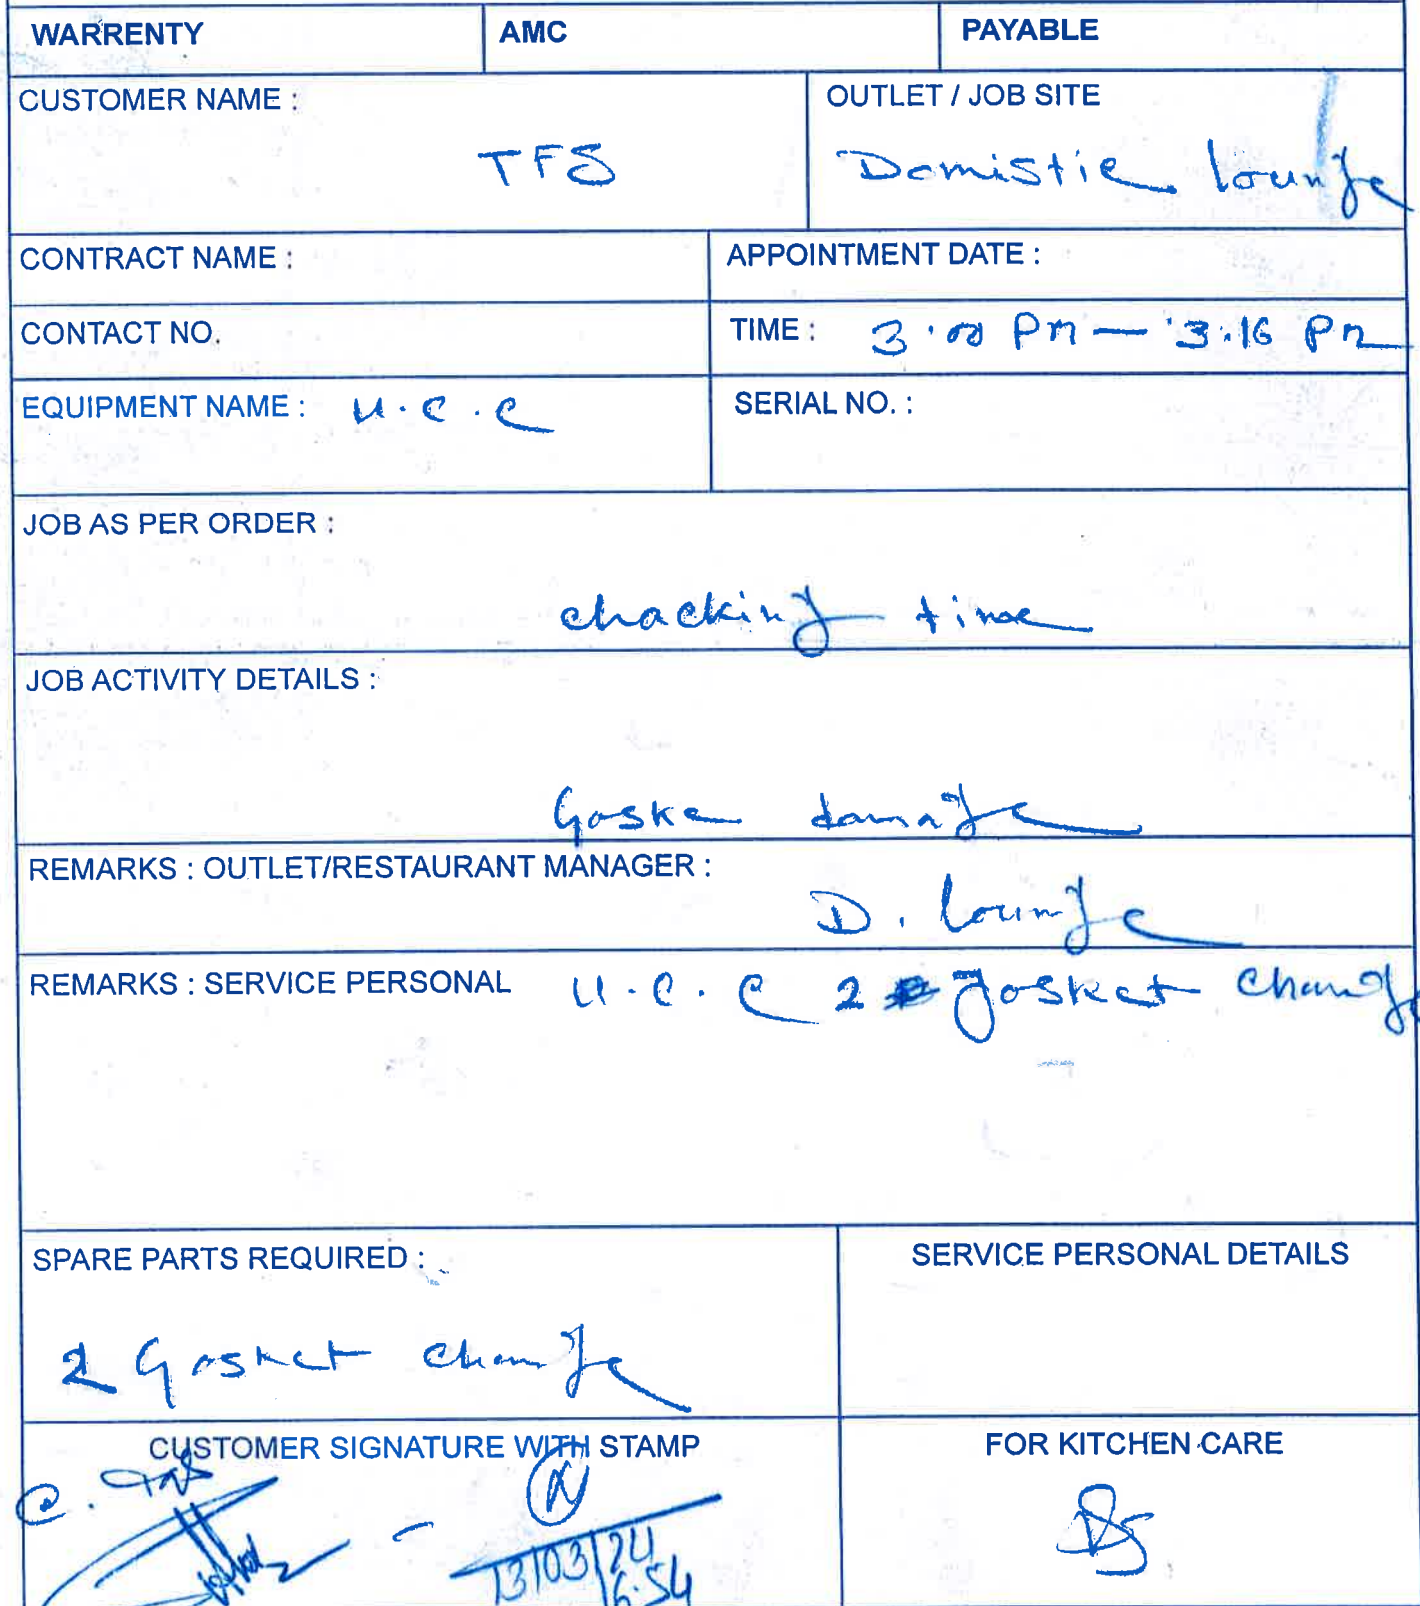 WARRENTY AMC PAYABLE
CUSTOMER NAME : OUTLET / JOB SITE
TFS Domistic lounge
CONTRACT NAME : APPOINTMENT DATE :
CONTACT NO. TIME : 3.00 PM — 3.16 PM
EQUIPMENT NAME : U.C.C SERIAL NO. :
JOB AS PER ORDER :
chacking time
JOB ACTIVITY DETAILS :
Gaske damage
REMARKS : OUTLET/RESTAURANT MANAGER :
D. lounge
REMARKS : SERVICE PERSONAL U.C.C 2 gasket change
SPARE PARTS REQUIRED : SERVICE PERSONAL DETAILS
2 Gasket change
CUSTOMER SIGNATURE WITH STAMP FOR KITCHEN CARE
13/03/24